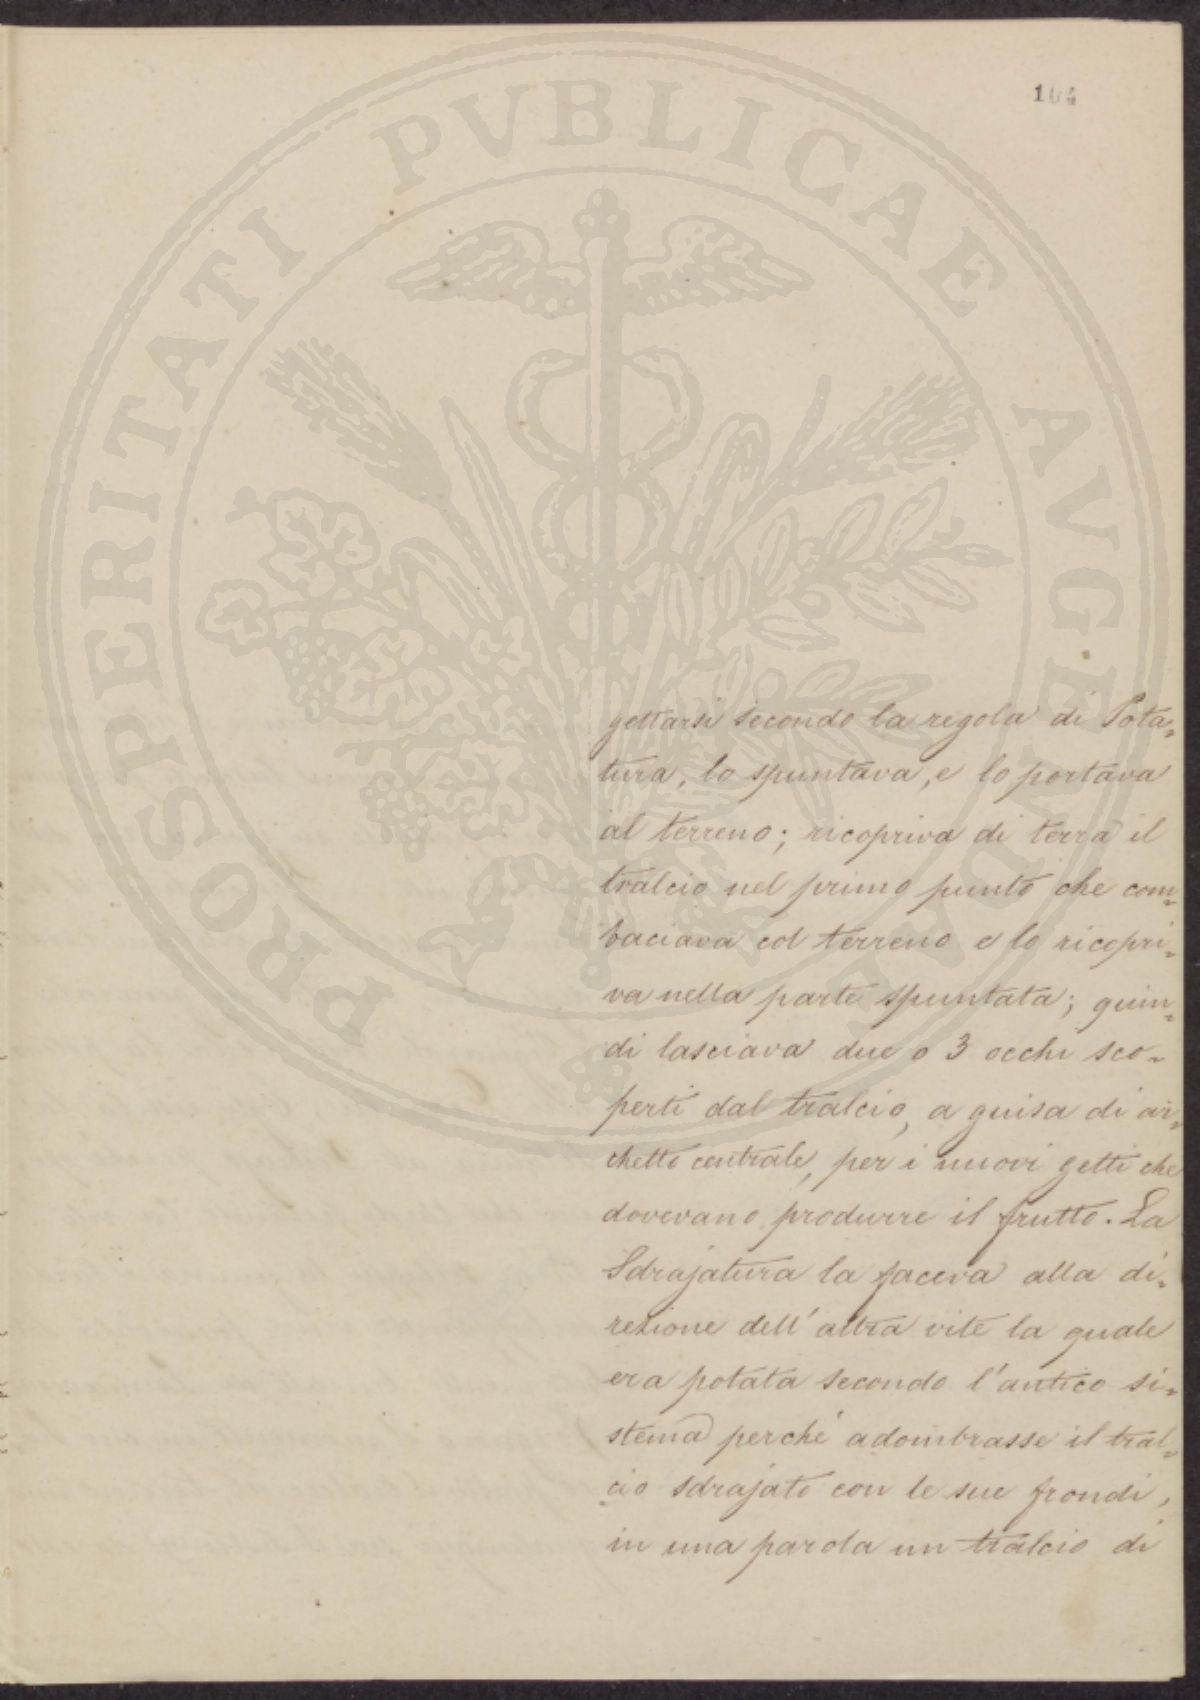 104
PROSPERITATI PUBLICAE AUGENDAE
gettarsi secondo la regola di Pota=
tura, lo spuntava, e lo portava
al terreno; ricopriva di terra il
tralcio nel primo punto che com=
baciava col terreno e lo ricopri=
va nella parte spuntata; quin=
di lasciava due o 3 occhi sco=
perti dal tralcio, a guisa di ar=
chetto centrale, per i nuovi getti che
dovevano produrre il frutto. La
Sdrajatura la faceva alla di=
rezione dell'altra vite la quale
era potata secondo l'antico si=
stema perché adombrasse il tral=
cio sdrajato con le sue frondi,
in una parola un tralcio di